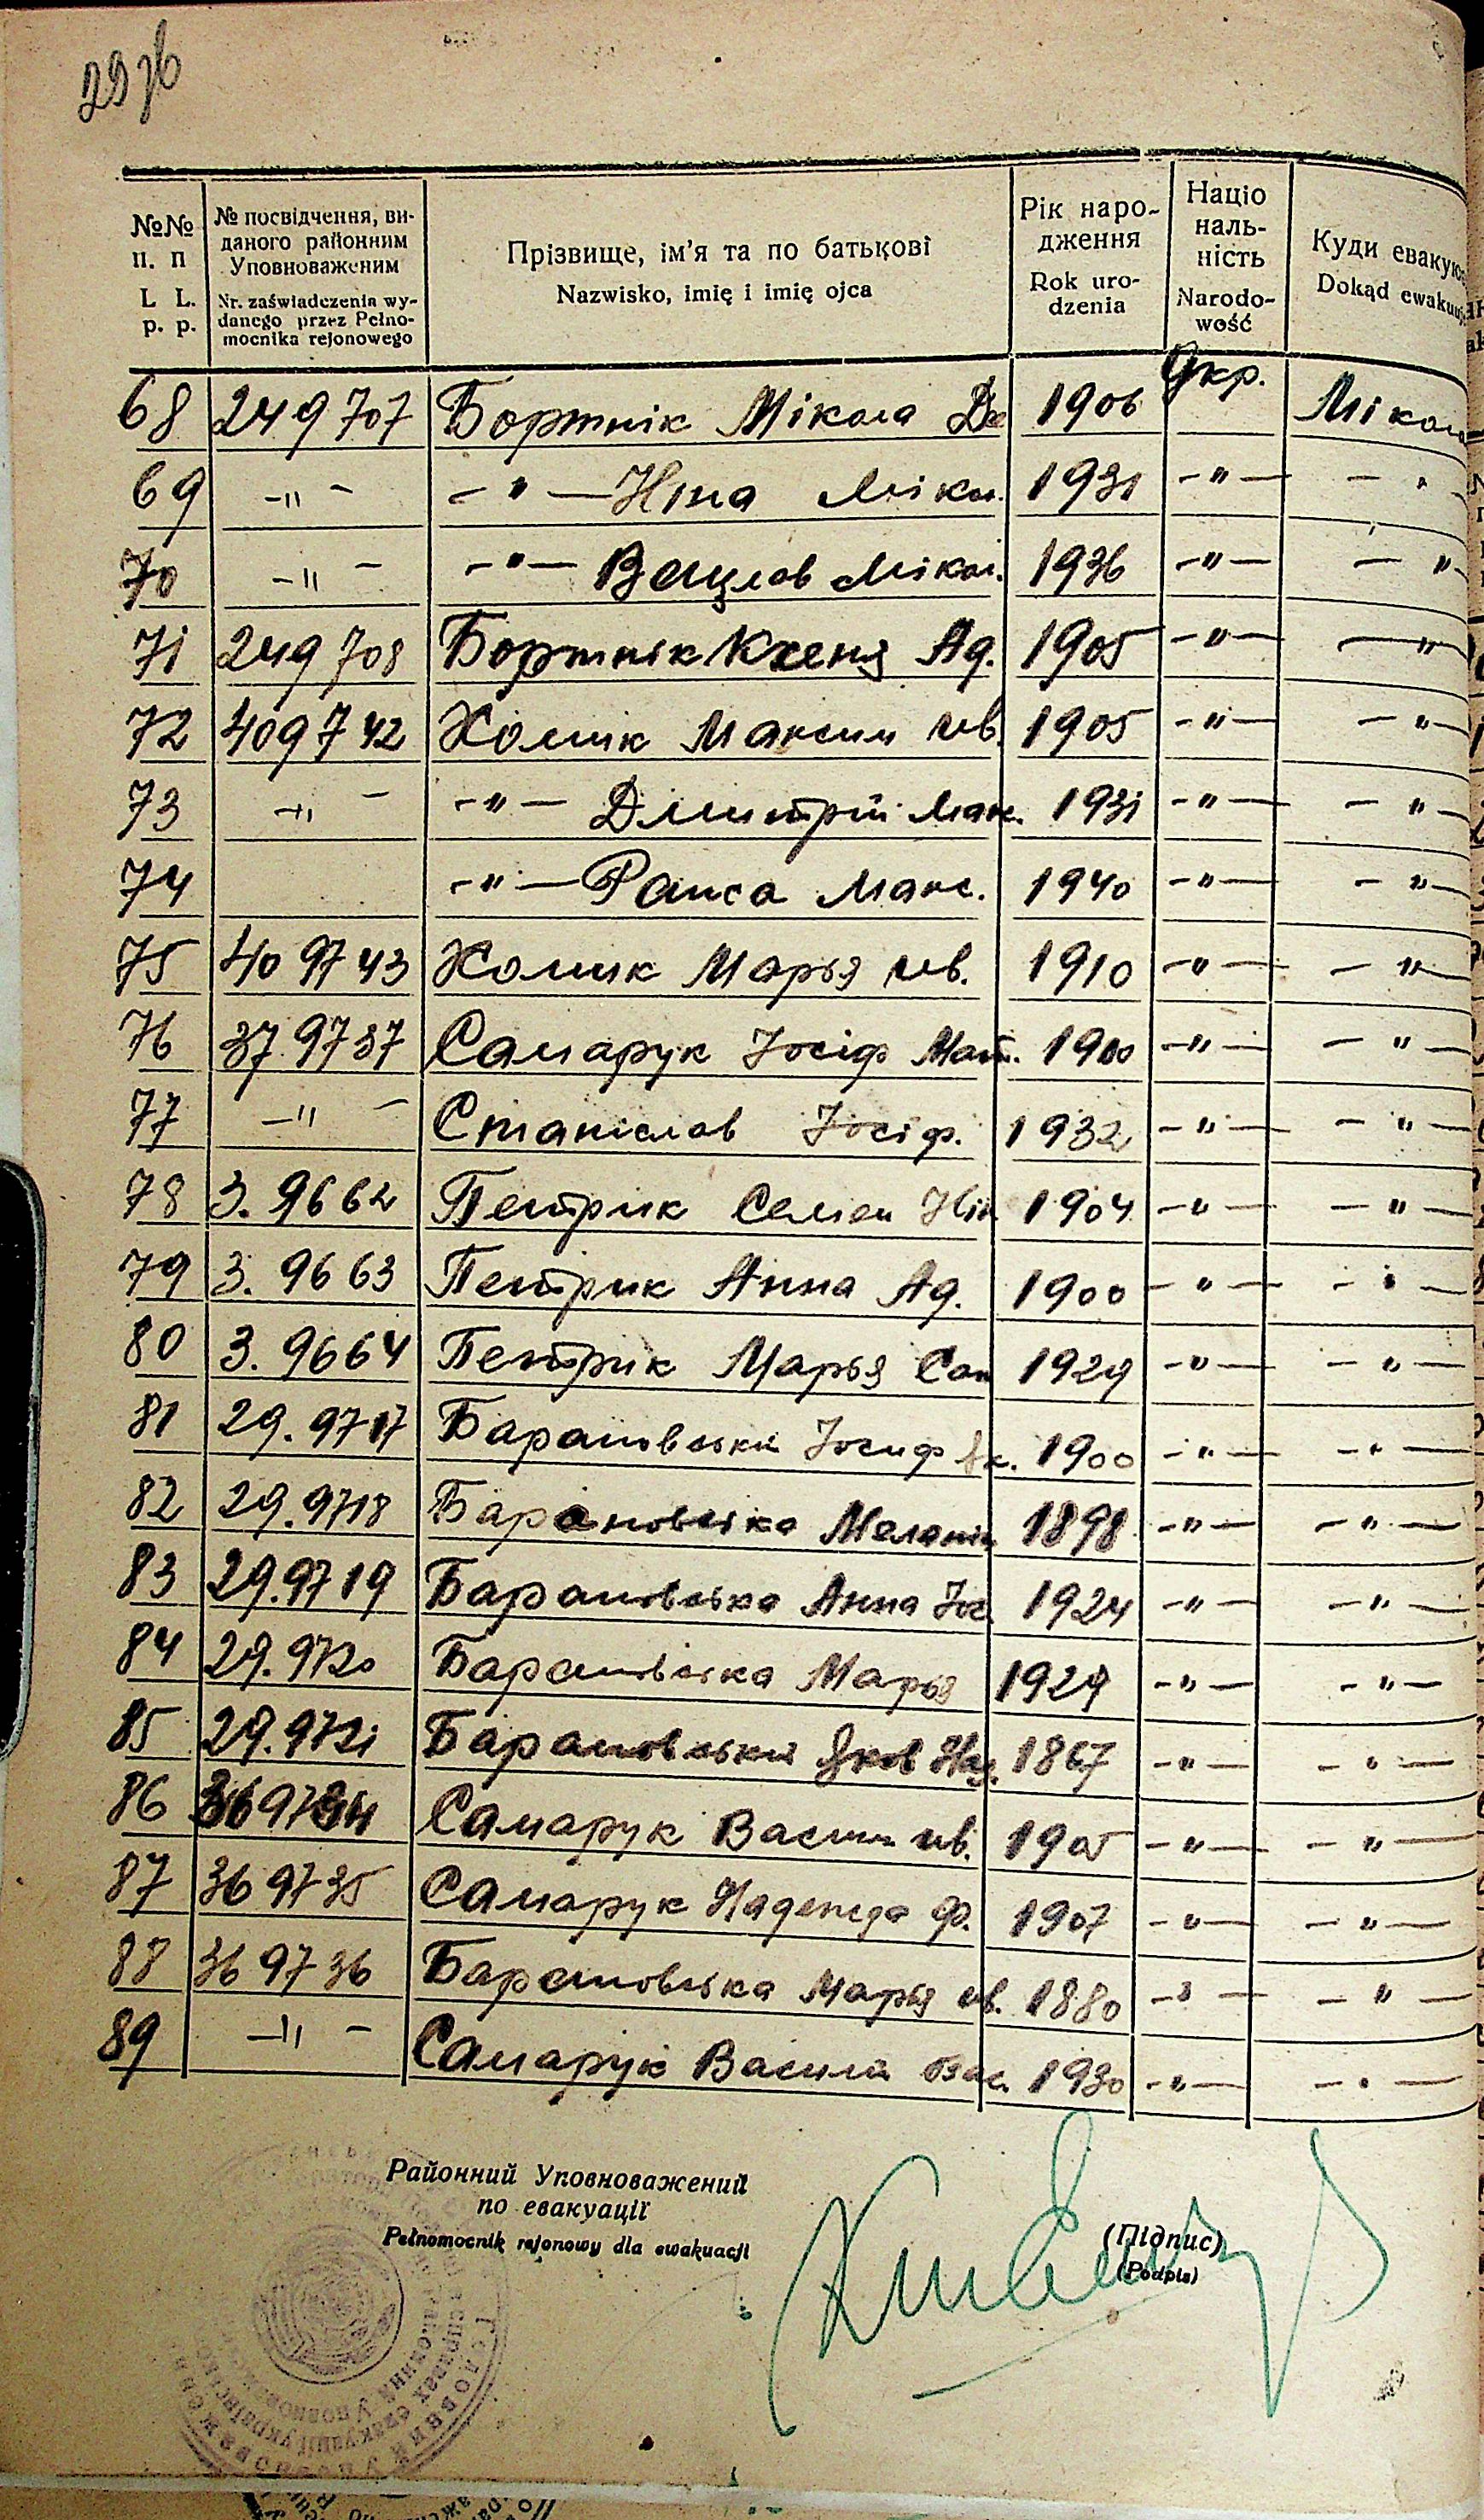 29 зв
№№ п. п
L L. p. p.
№ посвідчення, ви-
даного районним
Уповноваженим
Nr. zaświadczenia wy-
danego przez Pełno-
mocnika rejonowego
Прізвище, ім'я та по батькові
Nazwisko, imię i imię ojca
Рік наро-
дження
Rok uro-
dzenia
Націо
наль-
ність
Narodo-
wość
Куди евакую
Dokąd ewakuuj
68 249707 Бортнік Мікола Де 1906 Укр. Мікола
69 -"- -"- Ніна Мікол. 1931 -"- -"-
70 -"- -"- Вацлав Мікол. 1936 -"- -"-
71 249708 Бортнік Ксеня Ад. 1905 -"- -"-
72 409742 Хомік Максим ив. 1905 -"- -"-
73 -"- -"- Дмитрій Мак. 1931 -"- -"-
74 -"- Раиса Макс. 1940 -"- -"-
75 409743 Хомик Марья ив. 1910 -"- -"-
76 379737 Самарук Іосіф Мат. 1900 -"- -"-
77 -"- Станіслав Іосіф. 1932 -"- -"-
78 3.9662 Петрик Семен 1904 -"- -"-
79 3.9663 Петрик Анна Ад. 1900 -"- -"-
80 3.9664 Петрик Марья Сем 1929 -"- -"-
81 29.9717 Барановский Іосиф 1900 -"- -"-
82 29.9718 Барановська Меланія 1898 -"- -"-
83 29.9719 Барановська Анна Іос. 1924 -"- -"-
84 29.9720 Барановська Марья 1929 -"- -"-
85 29.9721 Барановський Яков 1867 -"- -"-
86 369734 Самарук Васили ив. 1905 -"- -"-
87 369735 Самарук Надежда Ф. 1907 -"- -"-
88 369736 Барановська Марья ив. 1880 -"- -"-
89 -"- Самарук Василій Вас. 1930 -"- -"-
Районний Уповноважений
по евакуації
Pełnomocnik rejonowy dla ewakuacji
(Підпис)
(Podpis)